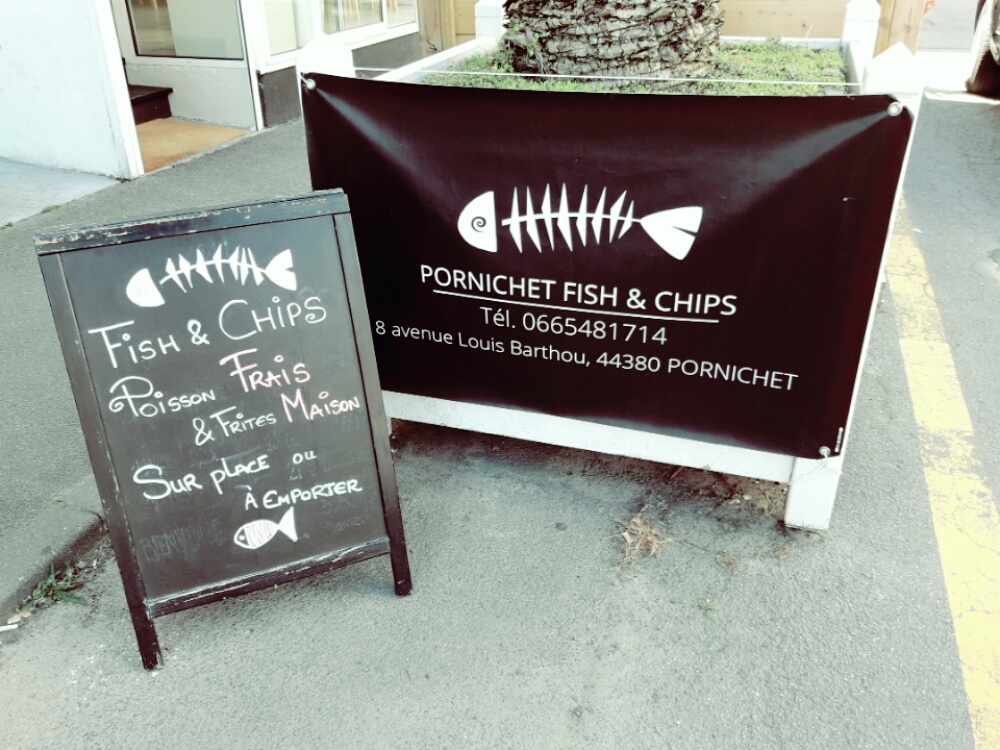 Fish & Chips
Poisson Frais
& Frites Maison
Sur place ou
à emporter
PORNICHET FISH & CHIPS
Tél. 0665481714
8 avenue Louis Barthou, 44380 PORNICHET